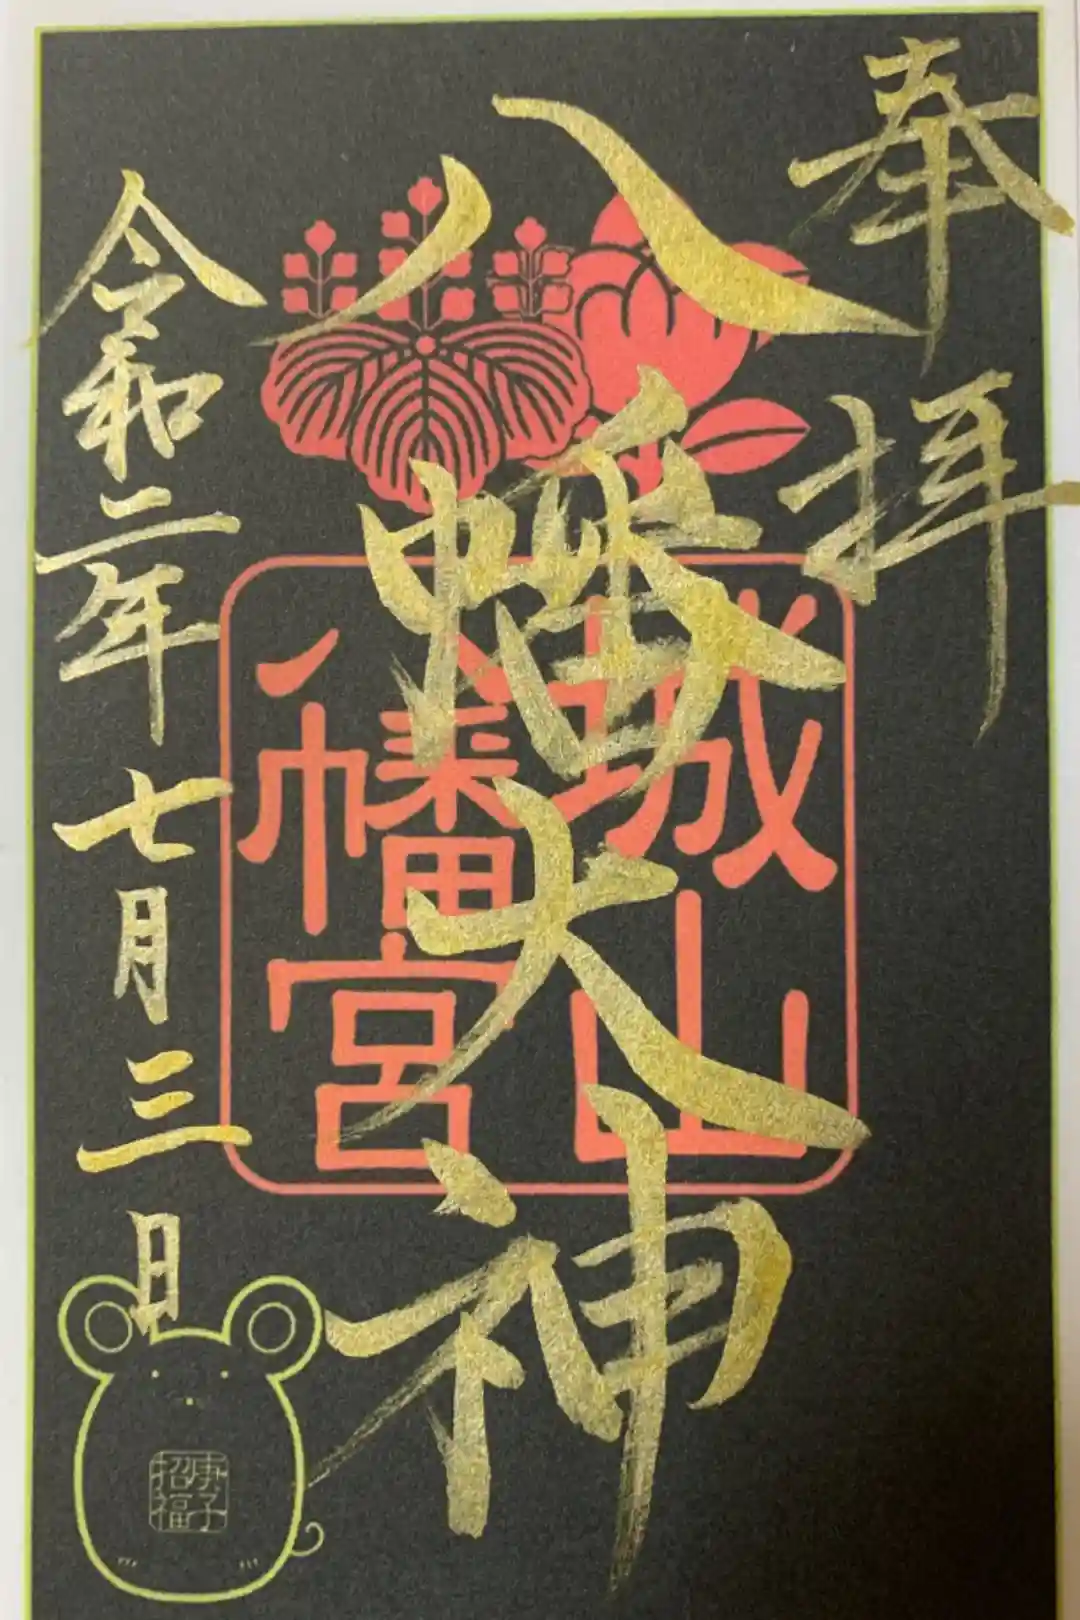 奉拝
八幡大神
城山
八幡宮
令和二年七月三日
庚子
招福